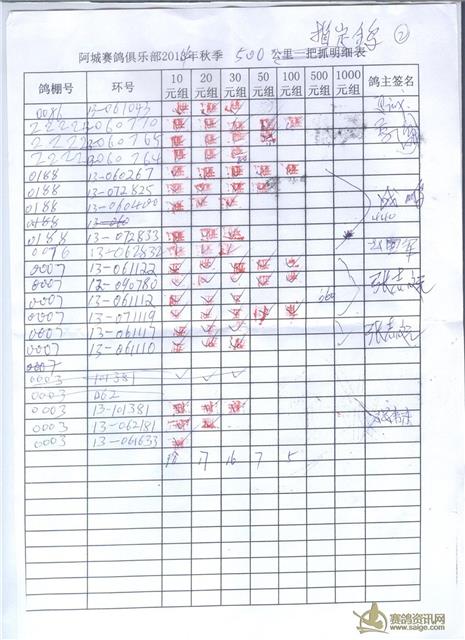 指定鸽 ②
阿城赛鸽俱乐部2013年秋季 500 公里一把抓明细表
鸽棚号 环号 10元组 20元组 30元组 50元组 100元组 500元组 1000元组 鸽主签名
0086 13-061043
22222 13-060770
22222 13-060765
22222 13-060764
0188 13-060267
0188 13-072825
0188 13-060400
0188 13-060
0188 13-072833
0076 13-062832
0007 13-061122
0007 12-090780 张志
0007 13-061112
0007 13-071119
0007 13-061117 张志
0007 13-061110
0007
0003 101381
0003 062
0003 13-101381
0003 13-062181
0003 13-061633
18 17 16 7 5
赛鸽资讯网
www.saige.com